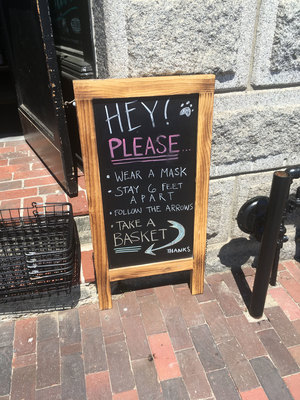 HEY!
PLEASE...
• WEAR A MASK
• STAY 6 FEET
APART
• FOLLOW THE ARROWS
• TAKE A
BASKET
THANKS